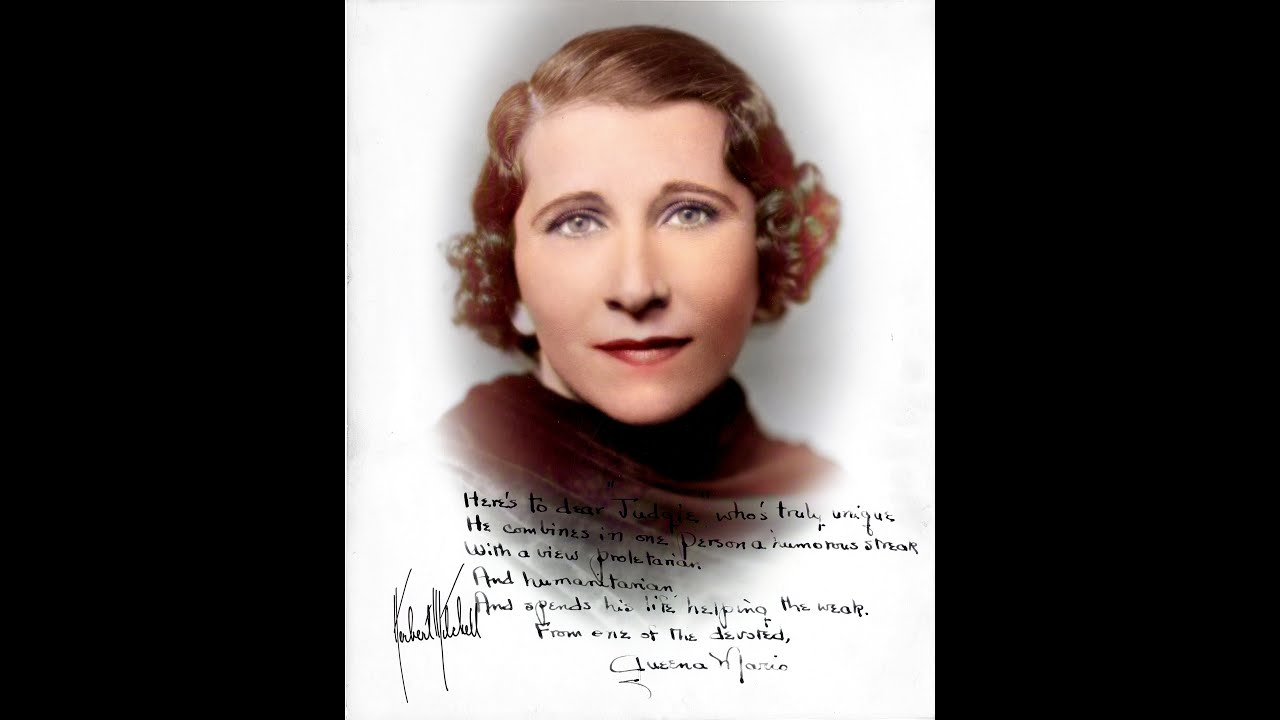 Here's to dear "Judgie" who's truly unique
He combines in one person a humorous streak
With a view proletarian
And humanitarian
And spends his life helping the weak.
From one of the devoted,
Queena Mario
Herbert Mitchell